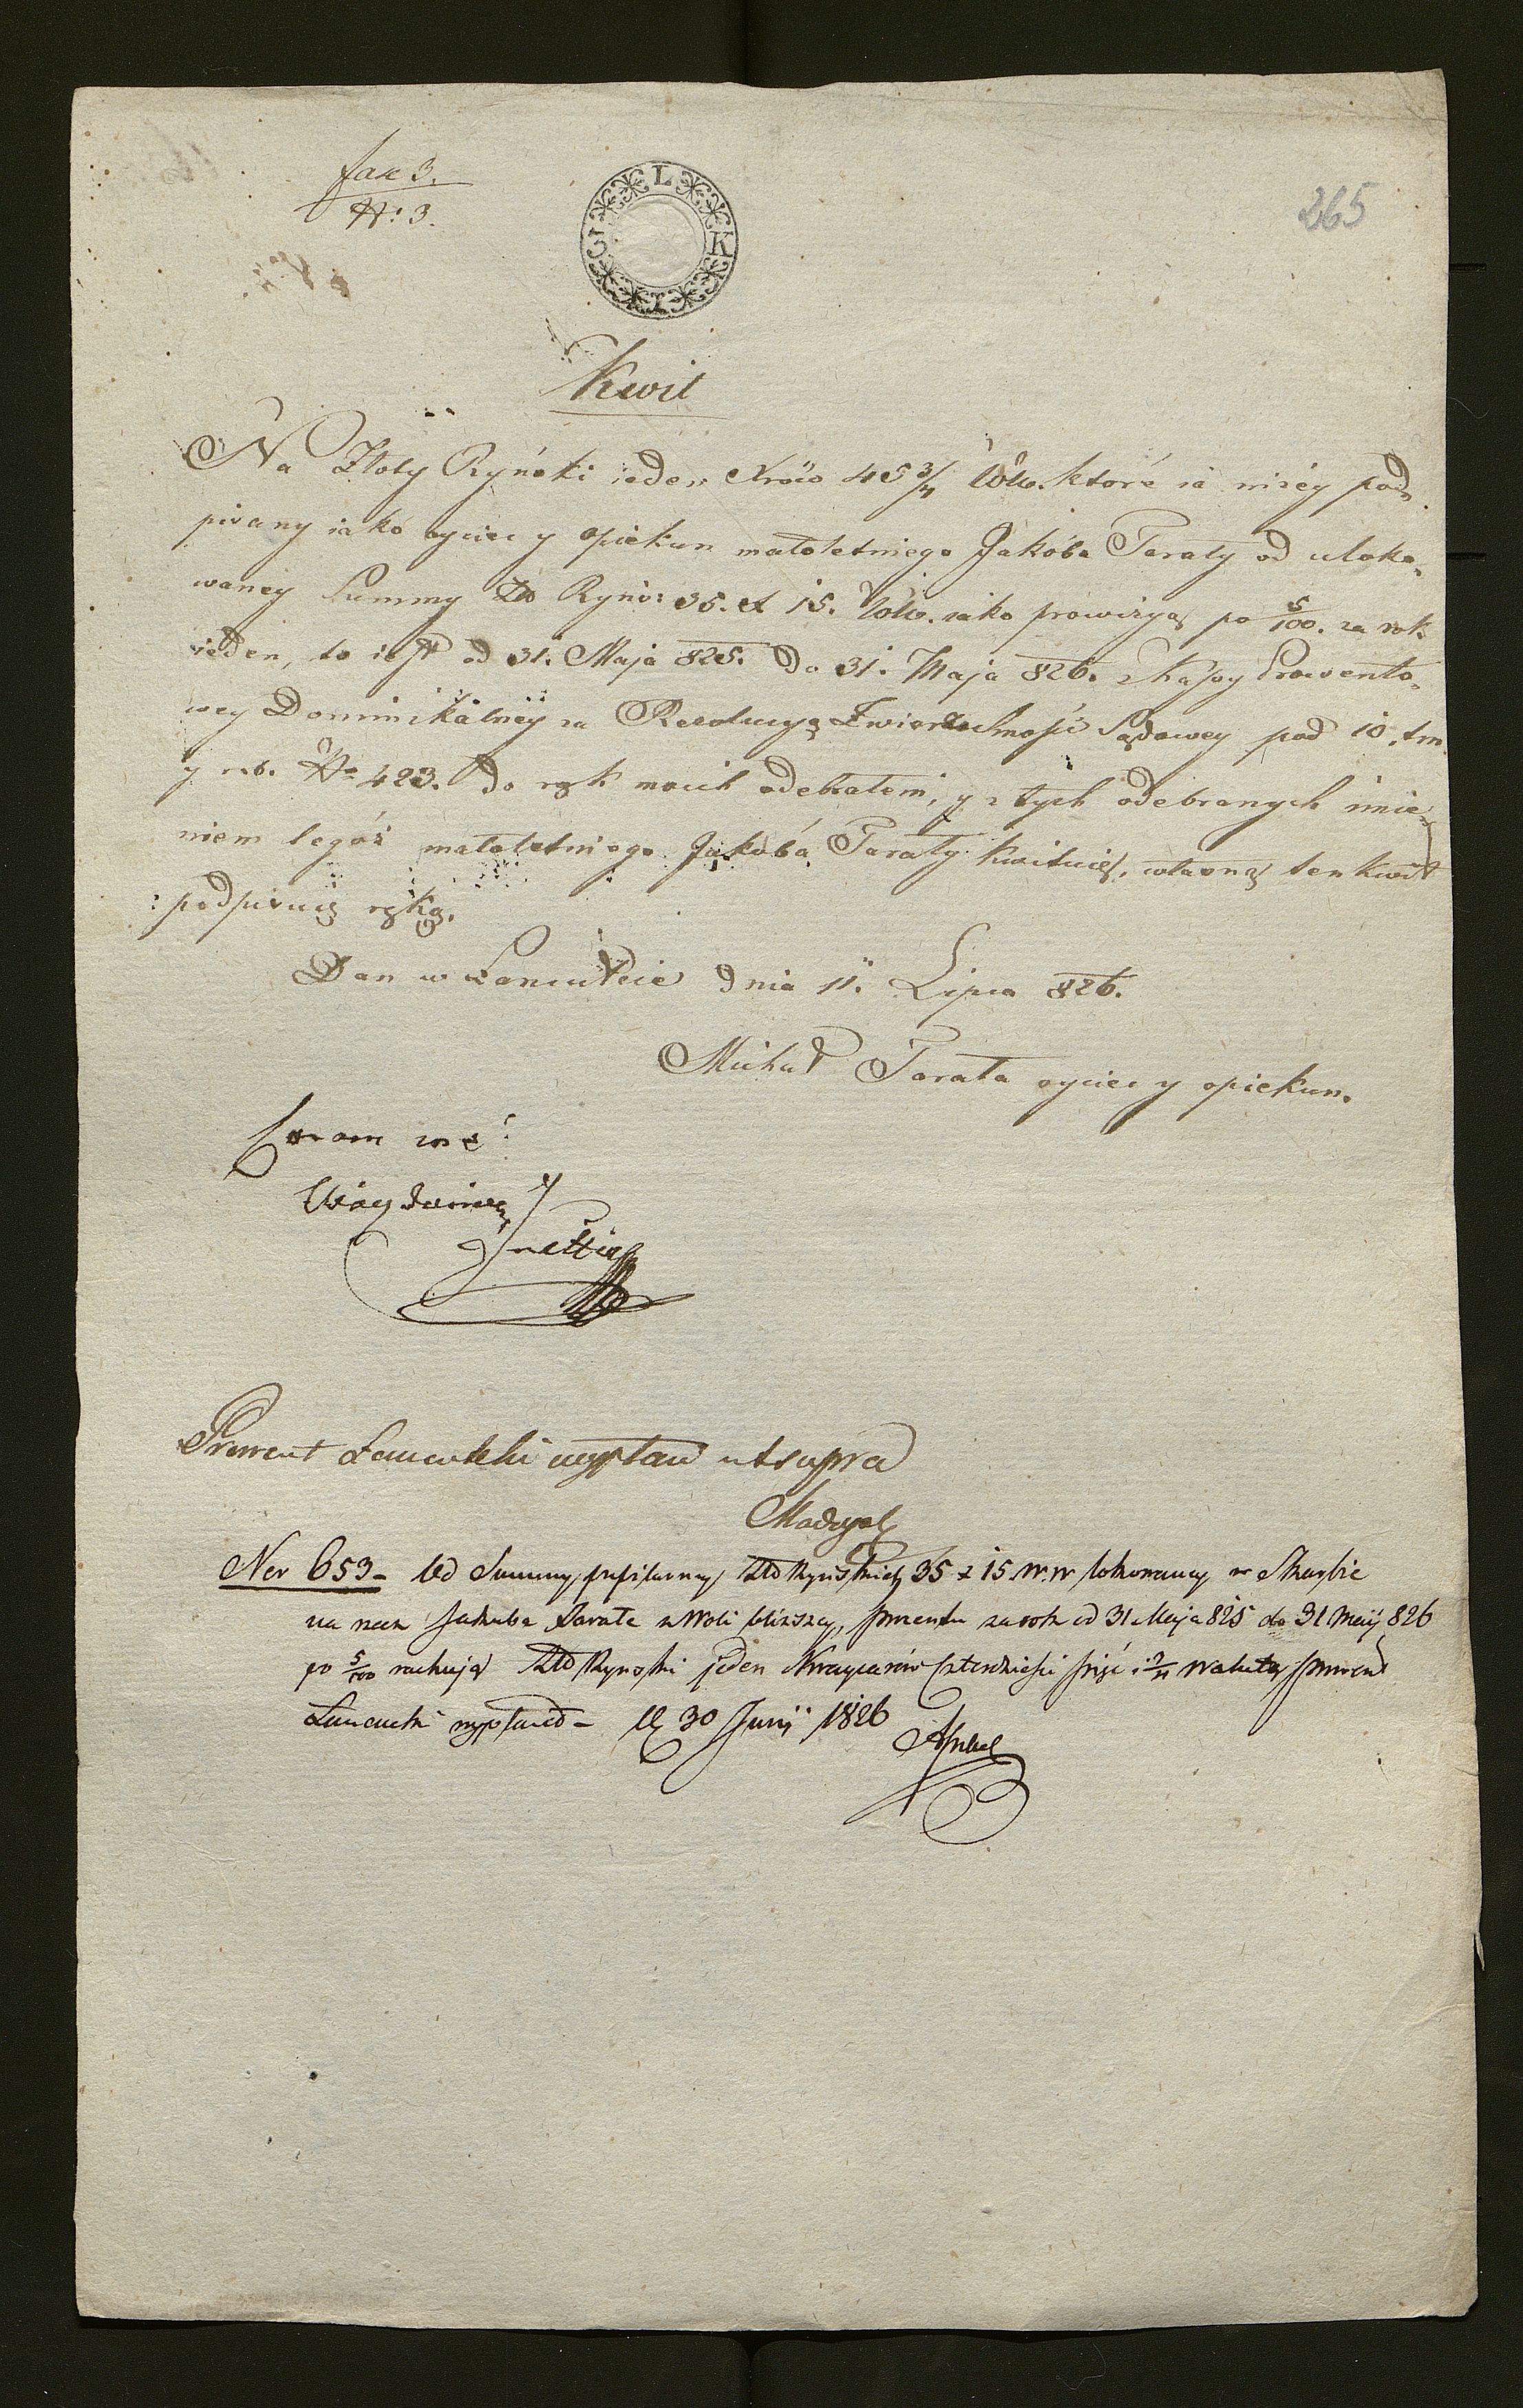 fax 3.
N: 3.
265
3 L K I
Kwit
Na Złoty Ryński ieden Xrów 45 3/4 WW. które ia niżéy pod,
pisany iako oyciec y opiekun małoletniego Jakóba Taraty od uloko,
waney Summy Zło Ryńs: 35. x 15. WW. iako prowizyą po 5/100. za rok
ieden, to iest od 31. Maja 825. do 31. Maja 826. z Kassy Prowento,
wey Dominikalnéy za Rezolucyą Zwierzchności Sądowey pod 10. tm.
y r.b. No 423. do rąk moich odebrałem, y z tych odebranych imie,
niem tegóż małoletniego Jakóba Taraty kwituię, własną ten kwit
podpisuię ręką.
Dan w Łancutcie dnia 11. Lipca 826.
Michał Tarata oyciec y opiekun.
Coram me:
Prowent Łancutski wypłaci ut supra
Ner 653 - Od Summy pupilarney Zło Ryńskich 35 x 15 W.W lokowaney w Skarbie
na rzecz Jakuba Tarata z Woli bliższey, procentu za rok od 31 Maja 825 do 31 Maij 826
po 5/100 rachując Zło Ryński jeden Kraycarów czterdzieści pięć i 3/4 Waluty prowent
Łancucki wypłacić - 30 Junij 1826